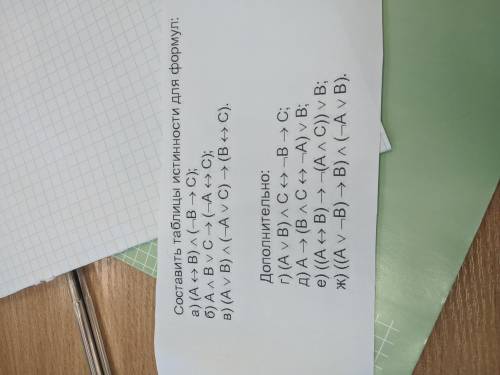 Составить таблицы истинности для формул:
а) (A ↔ B) ∧ (¬B → C);
б) A ∧ B ∨ C → (¬A ↔ C);
в) (A ∨ B) ∧ (¬A ∨ C) → (B ↔ C).
Дополнительно:
г) (A ∨ B) ∧ C ↔ ¬B → C;
д) A → (B ∧ C ↔ ¬A) ∨ B;
е) ((A ↔ B) → ¬(A ∧ C)) ∨ B;
ж) ((A ∨ ¬B) → B) ∧ (¬A ∨ B).